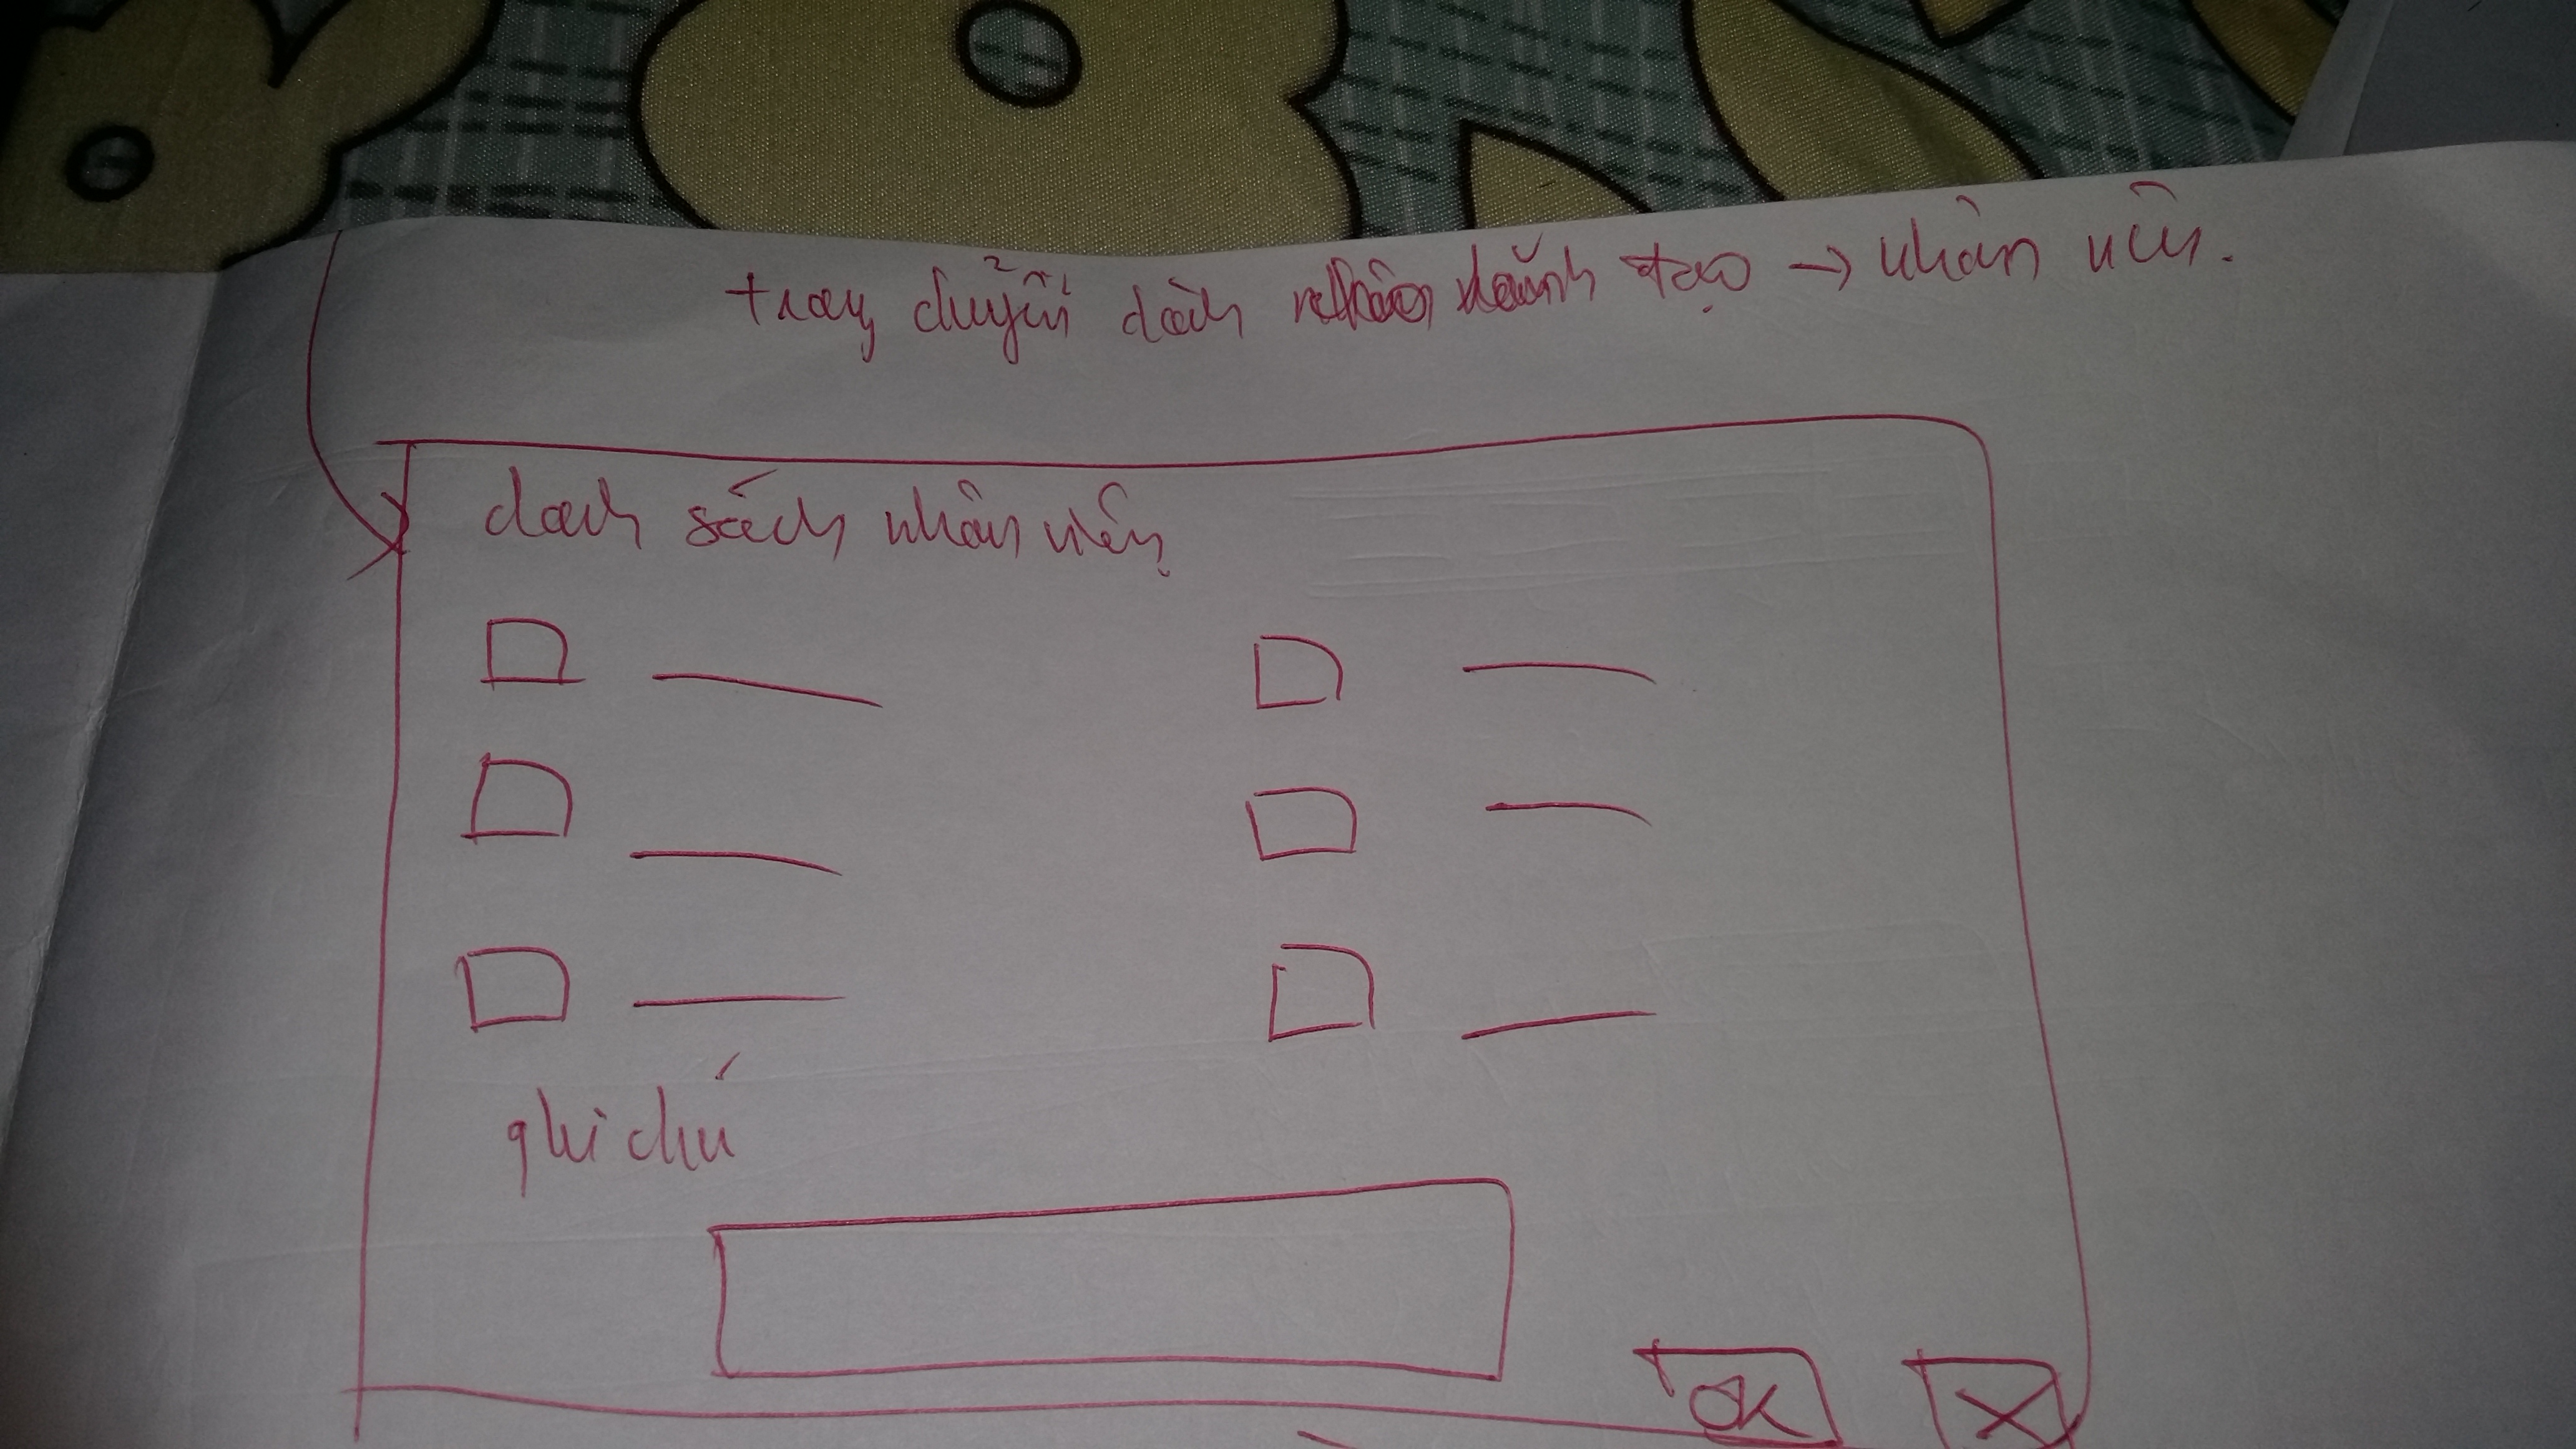 trang chuyển dành lãnh tạo → nhân viên.
danh sách nhân viên
ghi chú
OK X